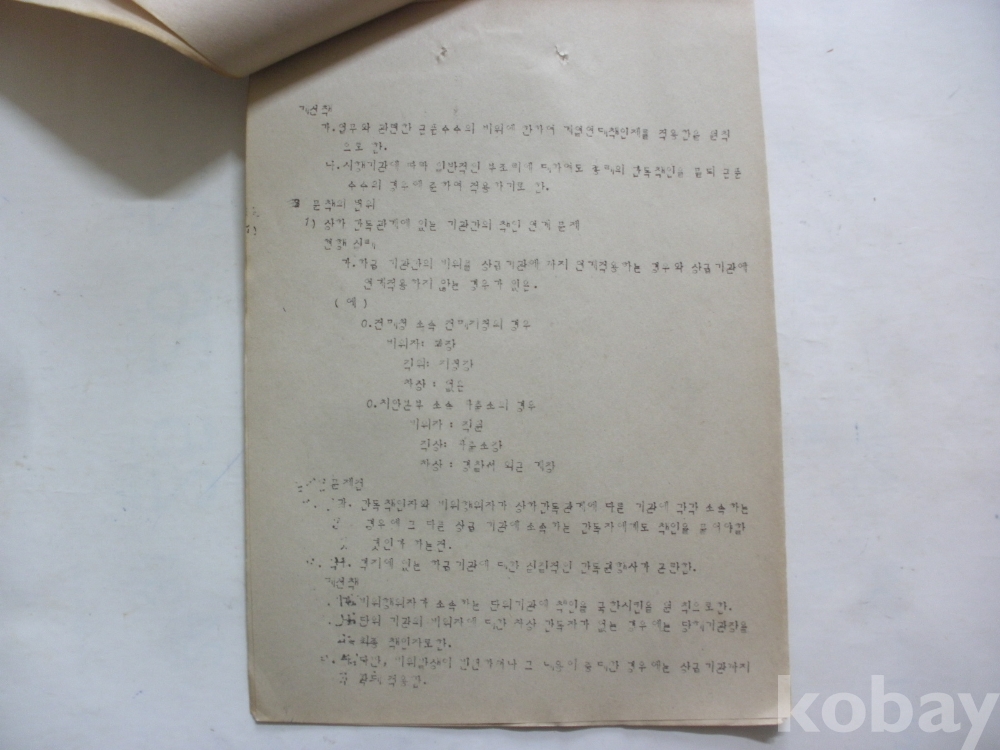 개선책
가.업무와 관련한 금품수수의 비위에 한하여 계열연대책임제를 적용함을 원칙
으로 한.
나.시행기관에 따라 일반적인 부조리에 대하여도 중대의 감독책임을 묻되 금품
수수의 경우에 준하여 적용하기로 한.
3 문책의 범위
1) 상하 감독관계에 있는 기관간의 책임 연계 문제
현행 실태
가.하급 기관만의 비위를 상급기관에 까지 연계적용하는 경우와 상급기관에
연계적용하지 않는 경우가 있음.
(예)
0.전매청 소속 전매지청의 경우
비위자: 과장
직위: 지청장
차상 : 없음
0.치안본부 소속 파출소의 경우
비위자 : 직원
직상: 파출소장
차상 : 경찰서 외근 계장
문제점
가. 감독책임자와 비위행위자가 상하감독관계에 다른 기관에 각각 소속하는
경우에 그 다른 상급 기관에 소속하는 감독자에게도 책임을 물어야할
것인가 하는점.
격지에 있는 하급기관에 대한 실질적인 감독권행사가 곤란함.
개선책
비위행위자가 소속하는 단위기관에 책임을 국한시킴을 원칙으로한.
단위 기관의 비위자에 대한 차상 감독자가 없는 경우에는 당해기관장을
최종 책임자로한.
다만, 비위관행이 만연하거나 그 내용이 중대한 경우에는 상급기관까지
확대 적용함.
kobay